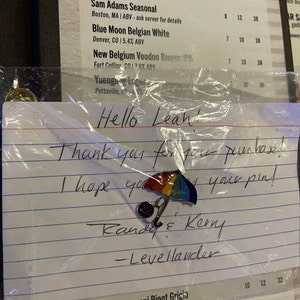 Sam Adams Seasonal
Boston, MA | ABV - ask server for details
8 12 38
Blue Moon Belgian White
Denver, CO | 5.4% ABV
New Belgium Voodoo Ranger IPA
Fort Collins, CO |
Pottsville,
Hello Leah!
Thank you for your purchase!
I hope you your pin!
Randy & Kerry
-Levellander
Pinot Grigio
10 13